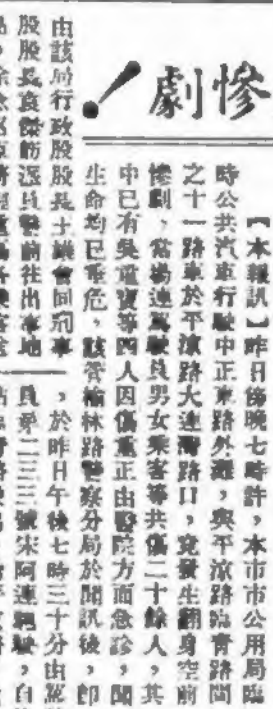 慘劇！
【本報訊】昨日傍晚七時許，本市市公用局臨
時公共汽車行駛中正東路外灘，與平涼路臨青路間
之十一路車於平涼路大連灣路口，竟發生翻身空前
慘劇，當場連駕駛員男女乘客等共傷二十餘人，其
中已有吳電寶等四人因傷重正由醫院方面急診，聞
生命均已垂危，該管榆林路警察分局於聞訊後，即
由該局行政股股長士議會同刑事
股股長袁傑飭派員警前往出事地
，於昨日午後七時三十分由駕駛
員第二三三號宋阿連駕駛，自